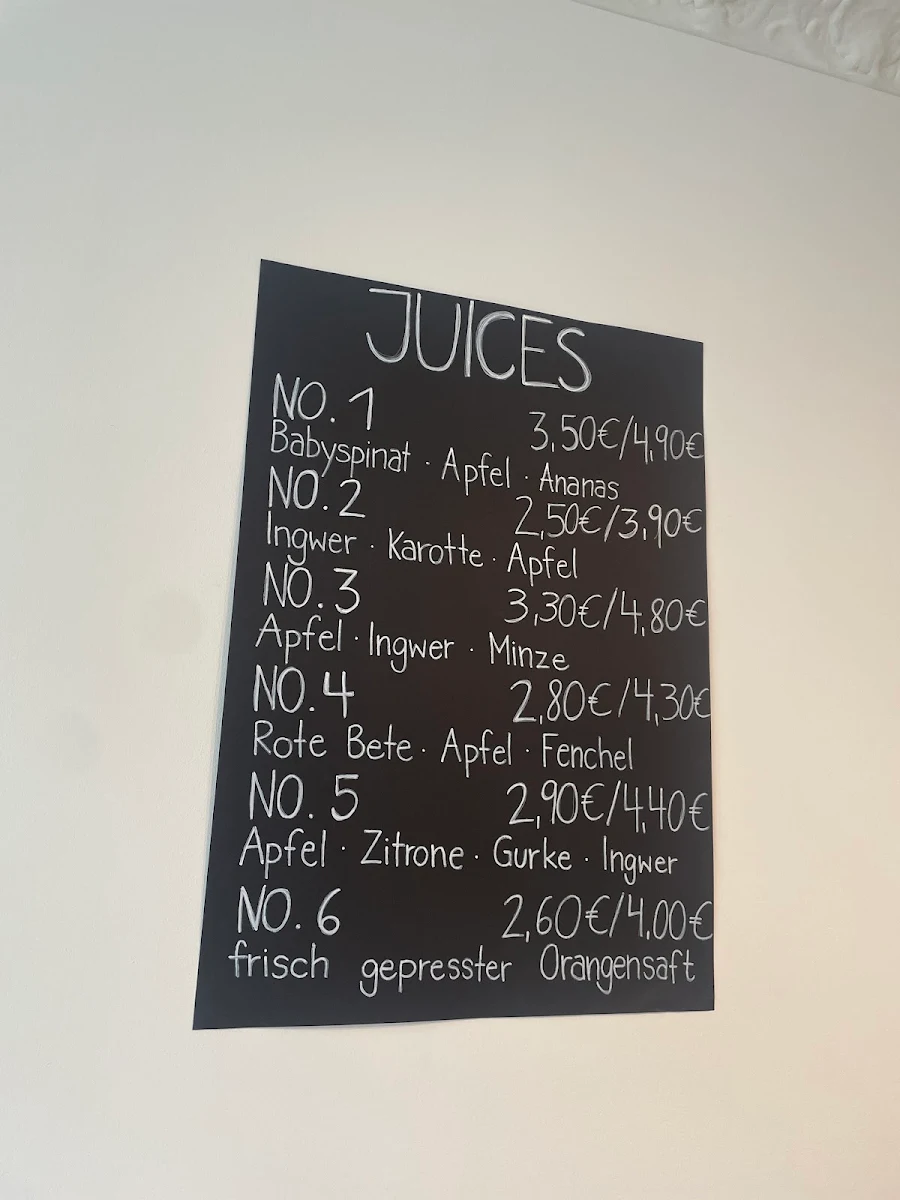 JUICES
NO. 1 3,50€/4,90€
Babyspinat · Apfel · Ananas
NO. 2 2,50€/3,90€
Ingwer · Karotte · Apfel
NO. 3 3,30€/4,80€
Apfel · Ingwer · Minze
NO. 4 2,80€/4,30€
Rote Bete · Apfel · Fenchel
NO. 5 2,90€/4,40€
Apfel · Zitrone · Gurke · Ingwer
NO. 6 2,60€/4,00€
frisch gepresster Orangensaft